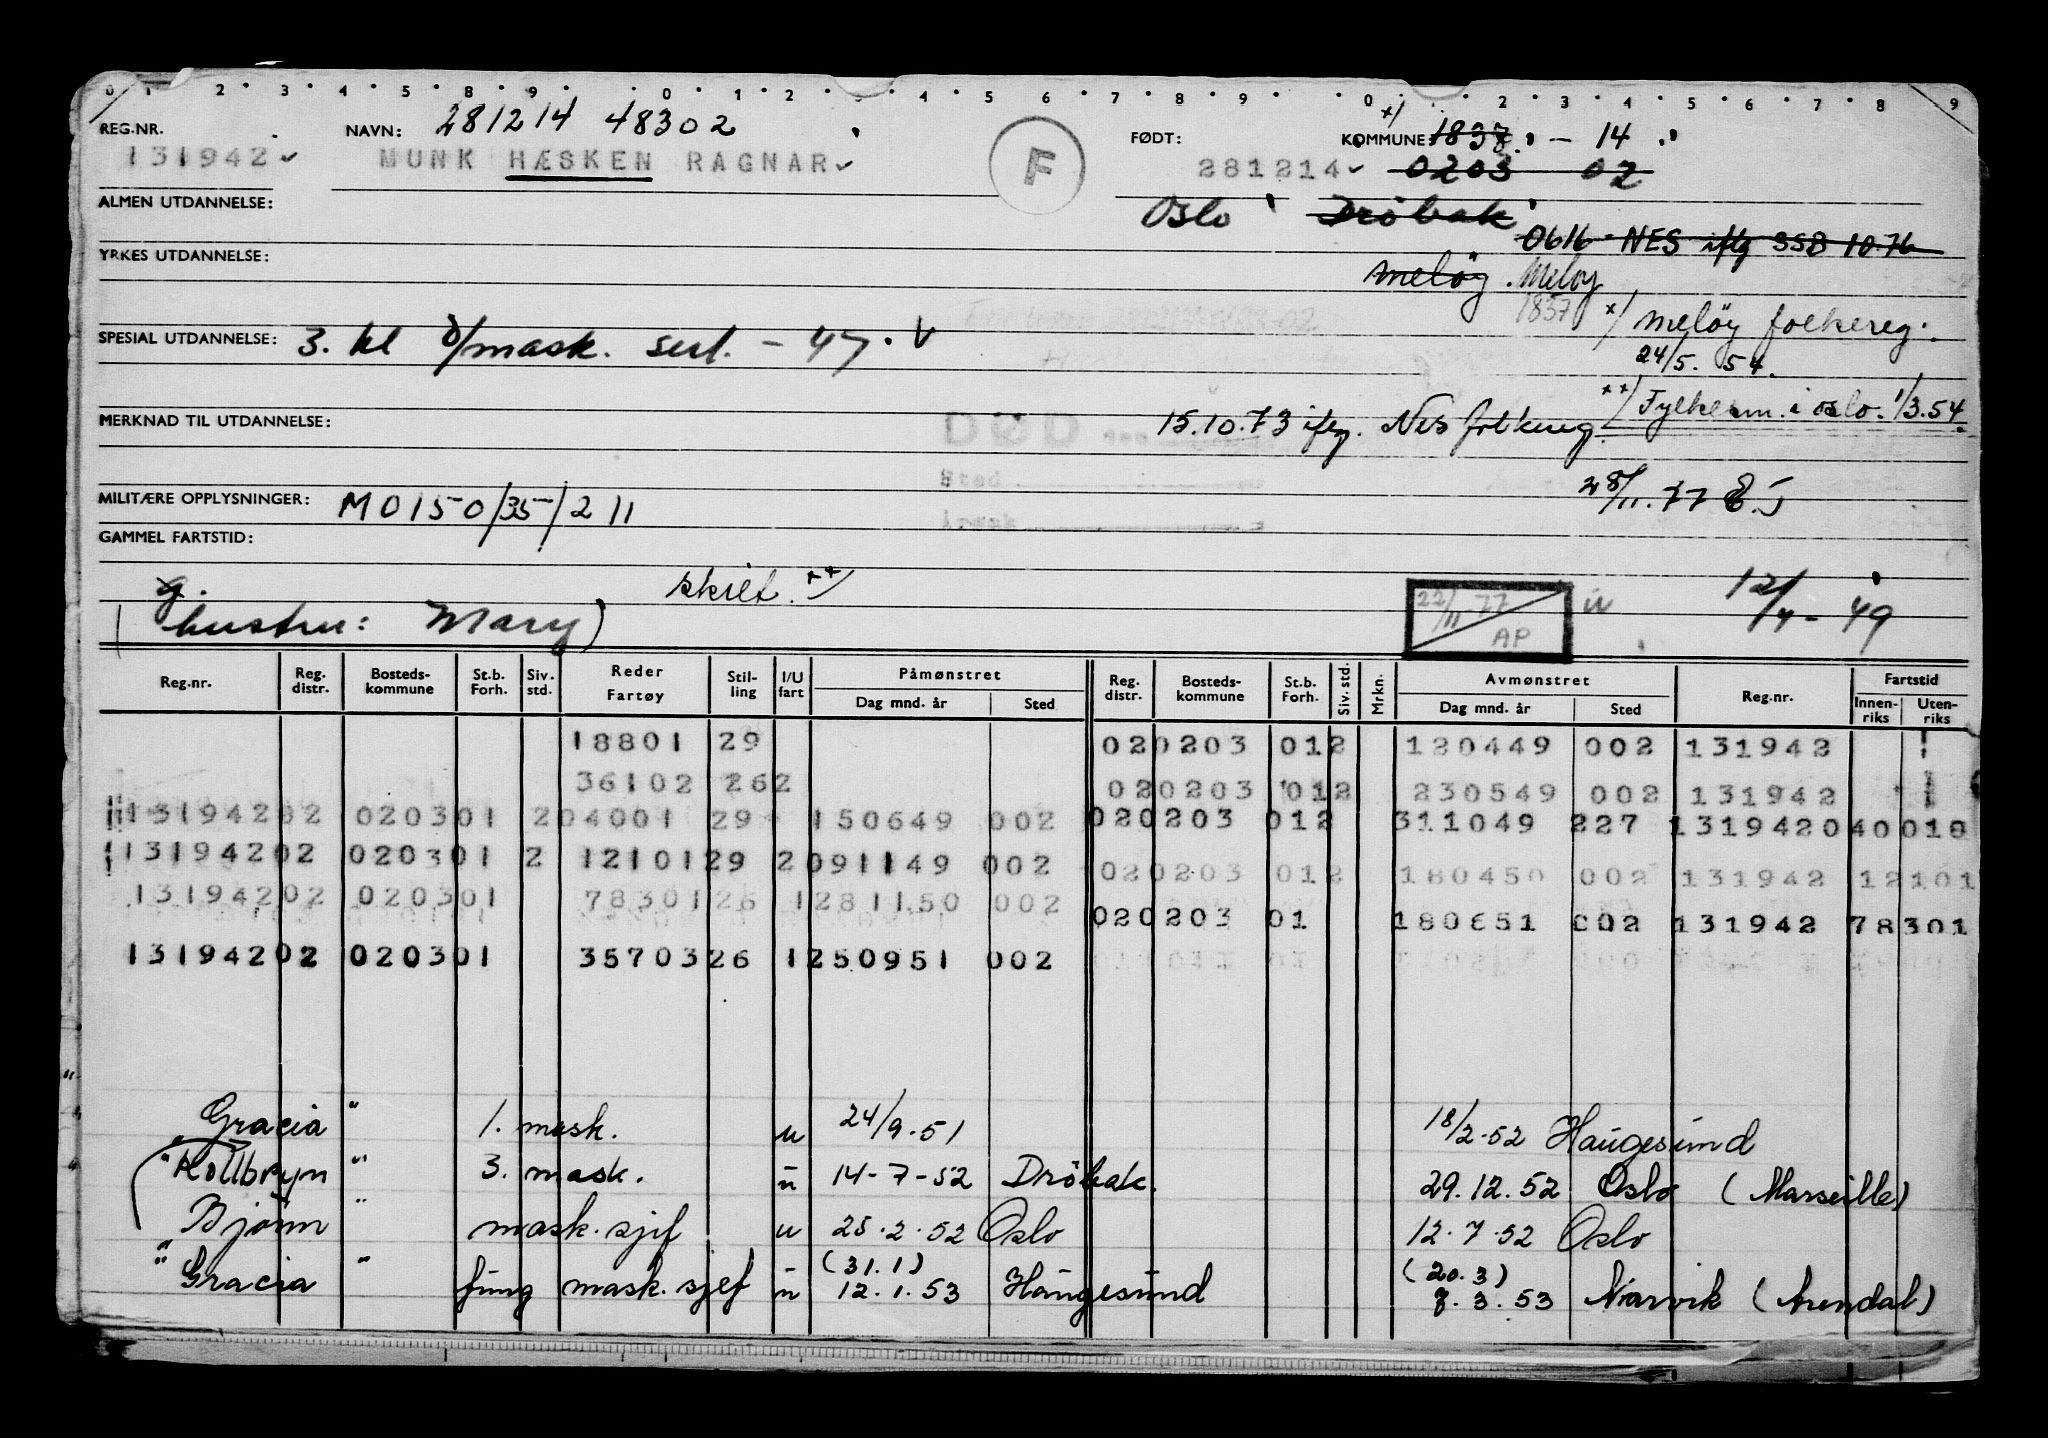 0 1 2 3 4 5 8 9 0 1 2 3 4 5 6 7 8 9 0 2 3 4 5 6 7 8 9
REG.NR. NAVN: 281214 48302 FØDT: KOMMUNE x/ 1837 - 14
131942 MUNK HÆSKEN RAGNAR F 281214 0203 02
ALMEN UTDANNELSE: Oslo Drøbak
0616 NES iflg SSB 10.76
YRKES UTDANNELSE: Meløy . Meløy
1837 x/ Meløy folkereg.
24/5. 54.
SPESIAL UTDANNELSE: 3. kl d/mask. sert. - 47. V
xx/ Fylkesm. i oslo. 1/3.54.
MERKNAD TIL UTDANNELSE: DØD 15.10.73 iflg. Nes folkereg.
Sted
MILITÆRE OPPLYSNINGER: M0150/35/211 28/11.77 E.J
GAMMEL FARTSTID:
g. skilt. xx/ 22/11 77 AP u 12/4-49
(hustru: Mary)
Reg.nr. Reg. distr. Bosteds-kommune St.b. Forh. Siv. std. Reder Fartøy Stil-ling I/U fart Påmønstret Dag mnd. år Sted Reg. distr. Bosteds-kommune St.b. Forh. Siv. std. Mrkn. Avmønstret Dag mnd. år Sted Reg.nr. Fartstid Innen-riks Uten-riks
18801 29 020203 012 120449 002 131942
36102 262 020203 012 230549 002 131942
13194202 020301 204001 29 150649 002 020203 012 311049 227 1319420 40018
13194202 020301 2 1210129 2091149 002 020203 012 180450 002 131942 12101
13194202 020301 7830126 1281150 002 020203 01 180651 002 131942 78301
13194202 020301 3570326 1250951 002
Gracia " 1. mask. u 24/9.51 18/2.52 Haugesund
" Kollbryn " 3. mask. u 14-7-52 Drøbak. 29.12.52 Oslo (Marseille)
Bjørn " mask.sjef u 25.2.52 Oslo 12.7.52 Oslo
(31.1) (20.3)
" Gracia " fung mask.sjef u 12.1.53 Haugesund 7.3.53 Narvik (Arendal)